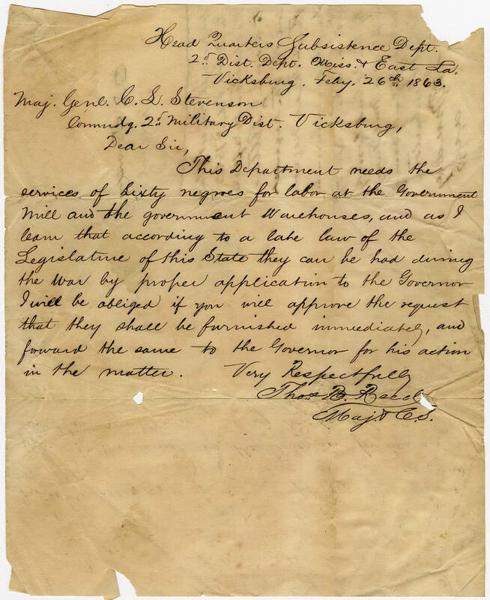 Head Quarters Subsistence Dept.
2d Dist. Dept. Miss. & East La.
Vicksburg, Feby. 26th 1863.
Maj. Genl. C. L. Stevenson
Commdg. 2d Military Dist. Vicksburg,
Dear Sir,
This Department needs the
services of Sixty negroes for labor at the Government
Mill and the government Warehouses, and as I
learn that according to a late law of the
Legislature of this State they can be had during
the War by proper application to the Governor
I will be obliged if you will approve the request
that they shall be furnished immediately, and
forward the same to the Governor for his action
in the matter. Very Respectfully
Thos. B. Reed
Maj. & C.S.